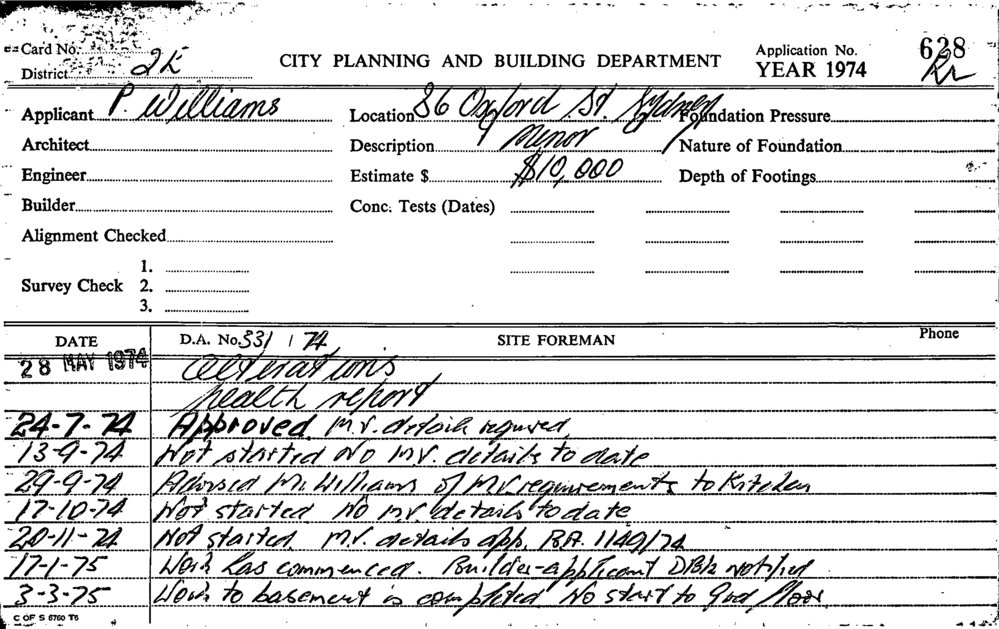 Card No.
District 2K
CITY PLANNING AND BUILDING DEPARTMENT
Application No. 628
YEAR 1974
Applicant P. Williams
Location 86 Oxford St. Sydney
Foundation Pressure
Architect
Description Minor
Nature of Foundation
Engineer
Estimate $ $10,000
Depth of Footings
Builder
Conc. Tests (Dates)
Alignment Checked
Survey Check
1.
2.
3.
DATE
D.A. No. 331 / 74
SITE FOREMAN
Phone
28 MAY 1974 alterations
health report
24-7-74 Approved. M.V. details required.
13-9-74 Not started No M.V. details to date
29-9-74 Advised Mr. Williams of M.V. requirements to Kitchen
17-10-74 Not started No M.V. details to date
20-11-74 Not started. M.V. details app. B.A. 1149/74
17-1-75 Work has commenced. Builder-applicant notified
3-3-75 Work to basement is completed No start to Grd floor.
C OF S 6760 T6